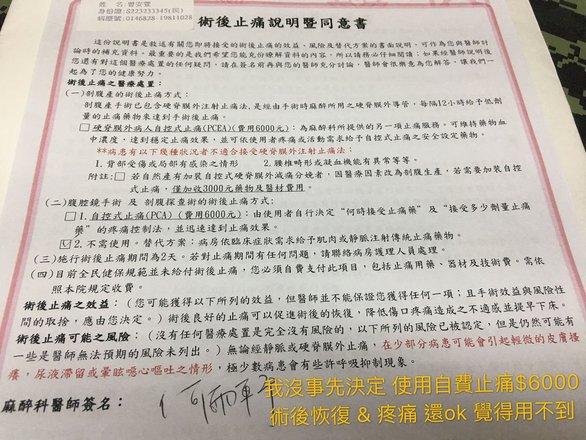 姓名：曾安萱
身份證：S223233345(民)
病歷號：0146828-19811028
術後止痛說明暨同意書
這份說明書是敘述有關您即將接受的術後止痛的效益、風險及替代方案的書面說明，可作為您與醫師討
論時的補充資料。最重要的是我們希望您能充份瞭解資料的內容，所以請務必仔細閱讀；如果經醫師說明後
您還有對這個醫療處置的任何疑問，請在簽名前再與您的醫師充分討論，醫師會很樂意為您解答，讓我們一
起為了您的健康努力。
術後止痛之醫療處置：
(一)剖腹產的術後止痛方式：
剖腹產手術已包含硬脊膜外注射止痛法,是經由手術時麻醉所用之硬脊膜外導管，每隔12小時給予低劑
量的止痛藥物來達到手術後止痛。
□硬脊膜外病人自控式止痛(PCEA)(費用6000元)：為麻醉科所提供的另一項止痛服務。可維持藥物血
中濃度，達到穩定止痛效果，並可依使用者疼痛或活動需求給予自控式止痛之安全設定藥物。
**病患有以下幾種狀況者不適合接受硬脊膜外注射止痛法：
1.背部受傷或局部有感染之情形 2.腰椎畸形或凝血機能有異常等等。
附註:□ 若自然產有加裝自控式硬脊膜外減痛分娩者，因醫療因素改為剖腹生產，若需要加裝自控
式止痛，僅加收3000元藥物及醫材費用。
(二)腹腔鏡手術 及 剖腹探查術的術後止痛方式：
□1.自控式止痛(PCA)(費用6000元)：由使用者自行決定"何時接受止痛藥"及"接受多少劑量止痛
藥"的疼痛控制法，並迅速達到止痛效果。
☑2.不需使用。替代方案：病房依臨床症狀需求給予肌肉或靜脈注射傳統止痛藥物。
(三)施行術後止痛期間為2天。若對止痛期間有任何問題，請聯絡病房護理人員處理。
(四)目前全民健保規範並未給付術後止痛，您必須自費支付此項目，包括止痛用藥、器材及技術費。需依
照本院規定收費。
術後止痛之效益：(您可能獲得以下所列的效益，但醫師並不能保證您獲得任何一項；且手術效益與風險性
間的取捨，應由您決定。)術後良好的止痛可以促進術後的恢復，降低傷口疼痛造成之不適感並提早下床。
術後止痛可能之風險：(沒有任何醫療處置是完全沒有風險的，以下所列的風險已被認定，但是仍然可能有
一些是醫師無法預期的風險未列出。)無論經靜脈或硬脊膜外止痛，在少部分病患可能會引起輕微的皮膚搔
癢，尿液滯留或暈眩噁心嘔吐之情形，極少數病患會有些許呼吸抑制現象。
麻醉科醫師簽名：
我沒事先決定 使用自費止痛$6000
術後恢復 & 疼痛 還ok 覺得用不到